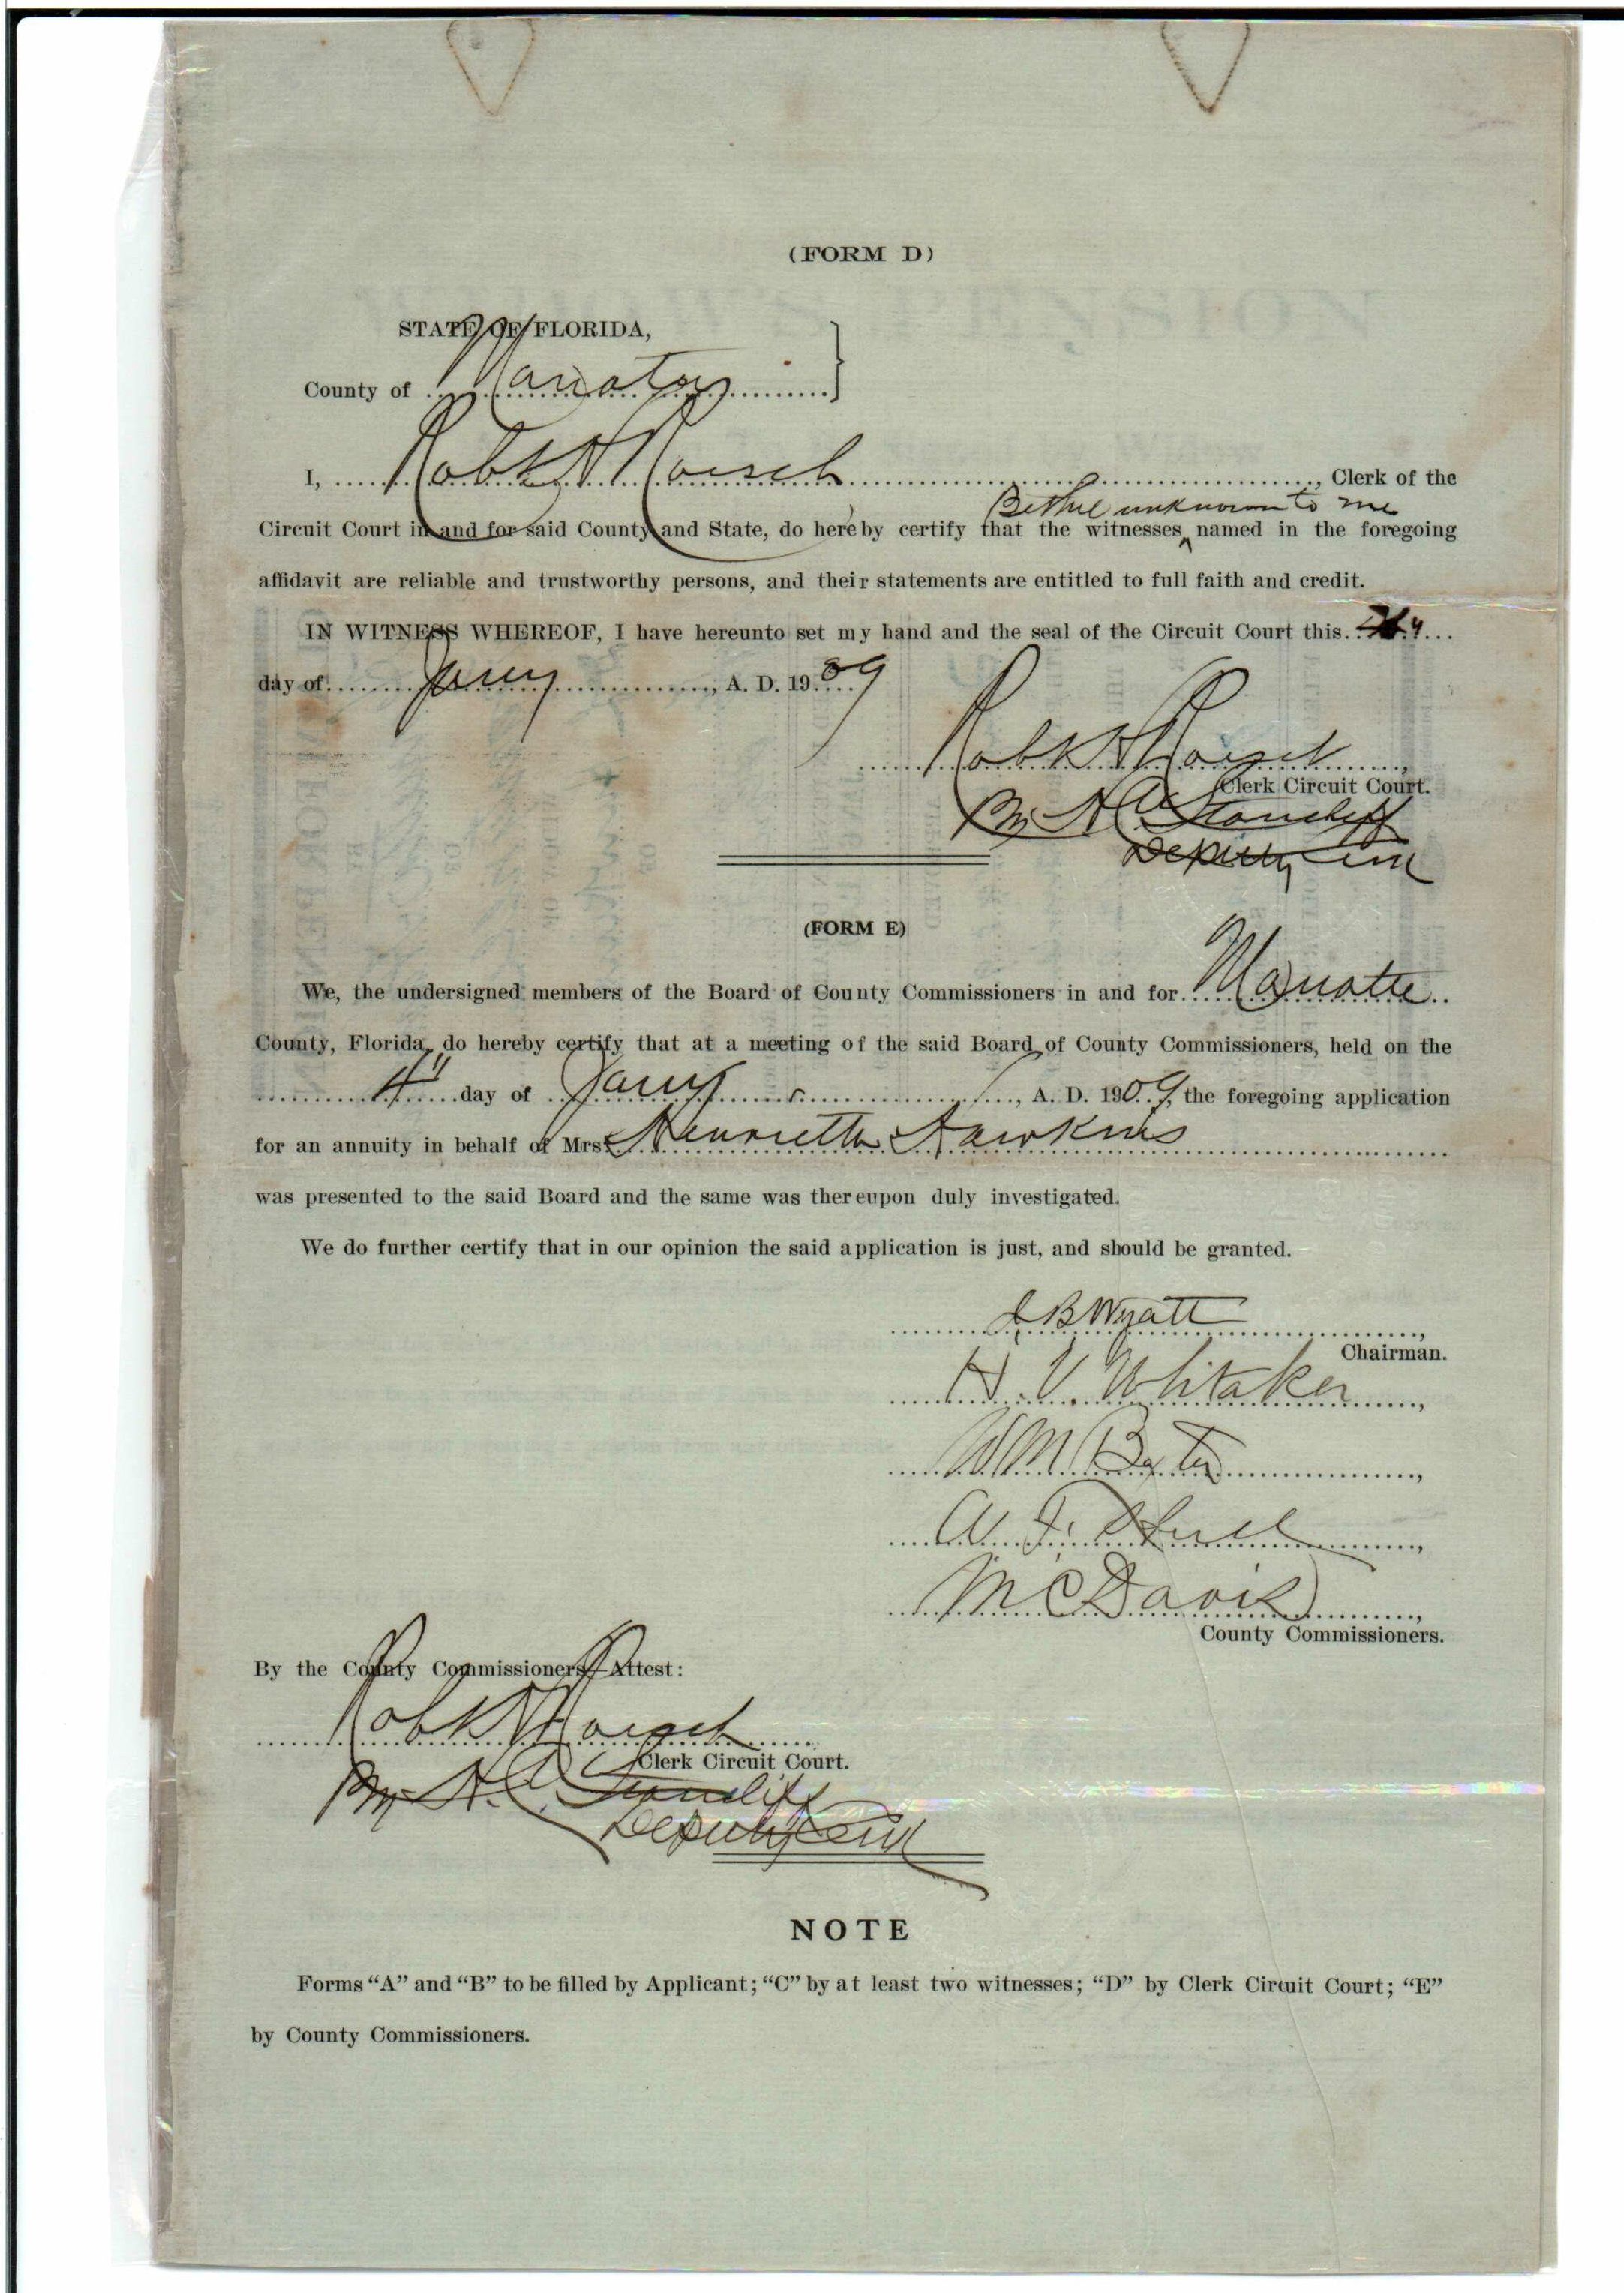 (FORM D)
STATE OF FLORIDA,
County of Manatee
I, Robt H Roesch, Clerk of the
Bethel unknown to me
Circuit Court in and for said County and State, do hereby certify that the witnesses, named in the foregoing
affidavit are reliable and trustworthy persons, and their statements are entitled to full faith and credit.
IN WITNESS WHEREOF, I have hereunto set my hand and the seal of the Circuit Court this 4
day of Jany, A. D. 1909
Robt H Roesch,
Clerk Circuit Court.
By H A
Deputy Clk
(FORM E)
We, the undersigned members of the Board of County Commissioners in and for Manatee
County, Florida, do hereby certify that at a meeting of the said Board of County Commissioners, held on the
4" day of Jany, A. D. 1909, the foregoing application
for an annuity in behalf of Mrs. Henrietta Hawkins
was presented to the said Board and the same was thereupon duly investigated.
We do further certify that in our opinion the said application is just, and should be granted.
B Wyatt,
Chairman.
H. V. Whitaker,
W M,
A. F.,
M C Davis,
County Commissioners.
By the County Commissioners—Attest:
Robt H Roesch
Clerk Circuit Court.
By H. A.
Deputy Clk
NOTE
Forms “A” and “B” to be filled by Applicant; “C” by at least two witnesses; “D” by Clerk Circuit Court; “E”
by County Commissioners.